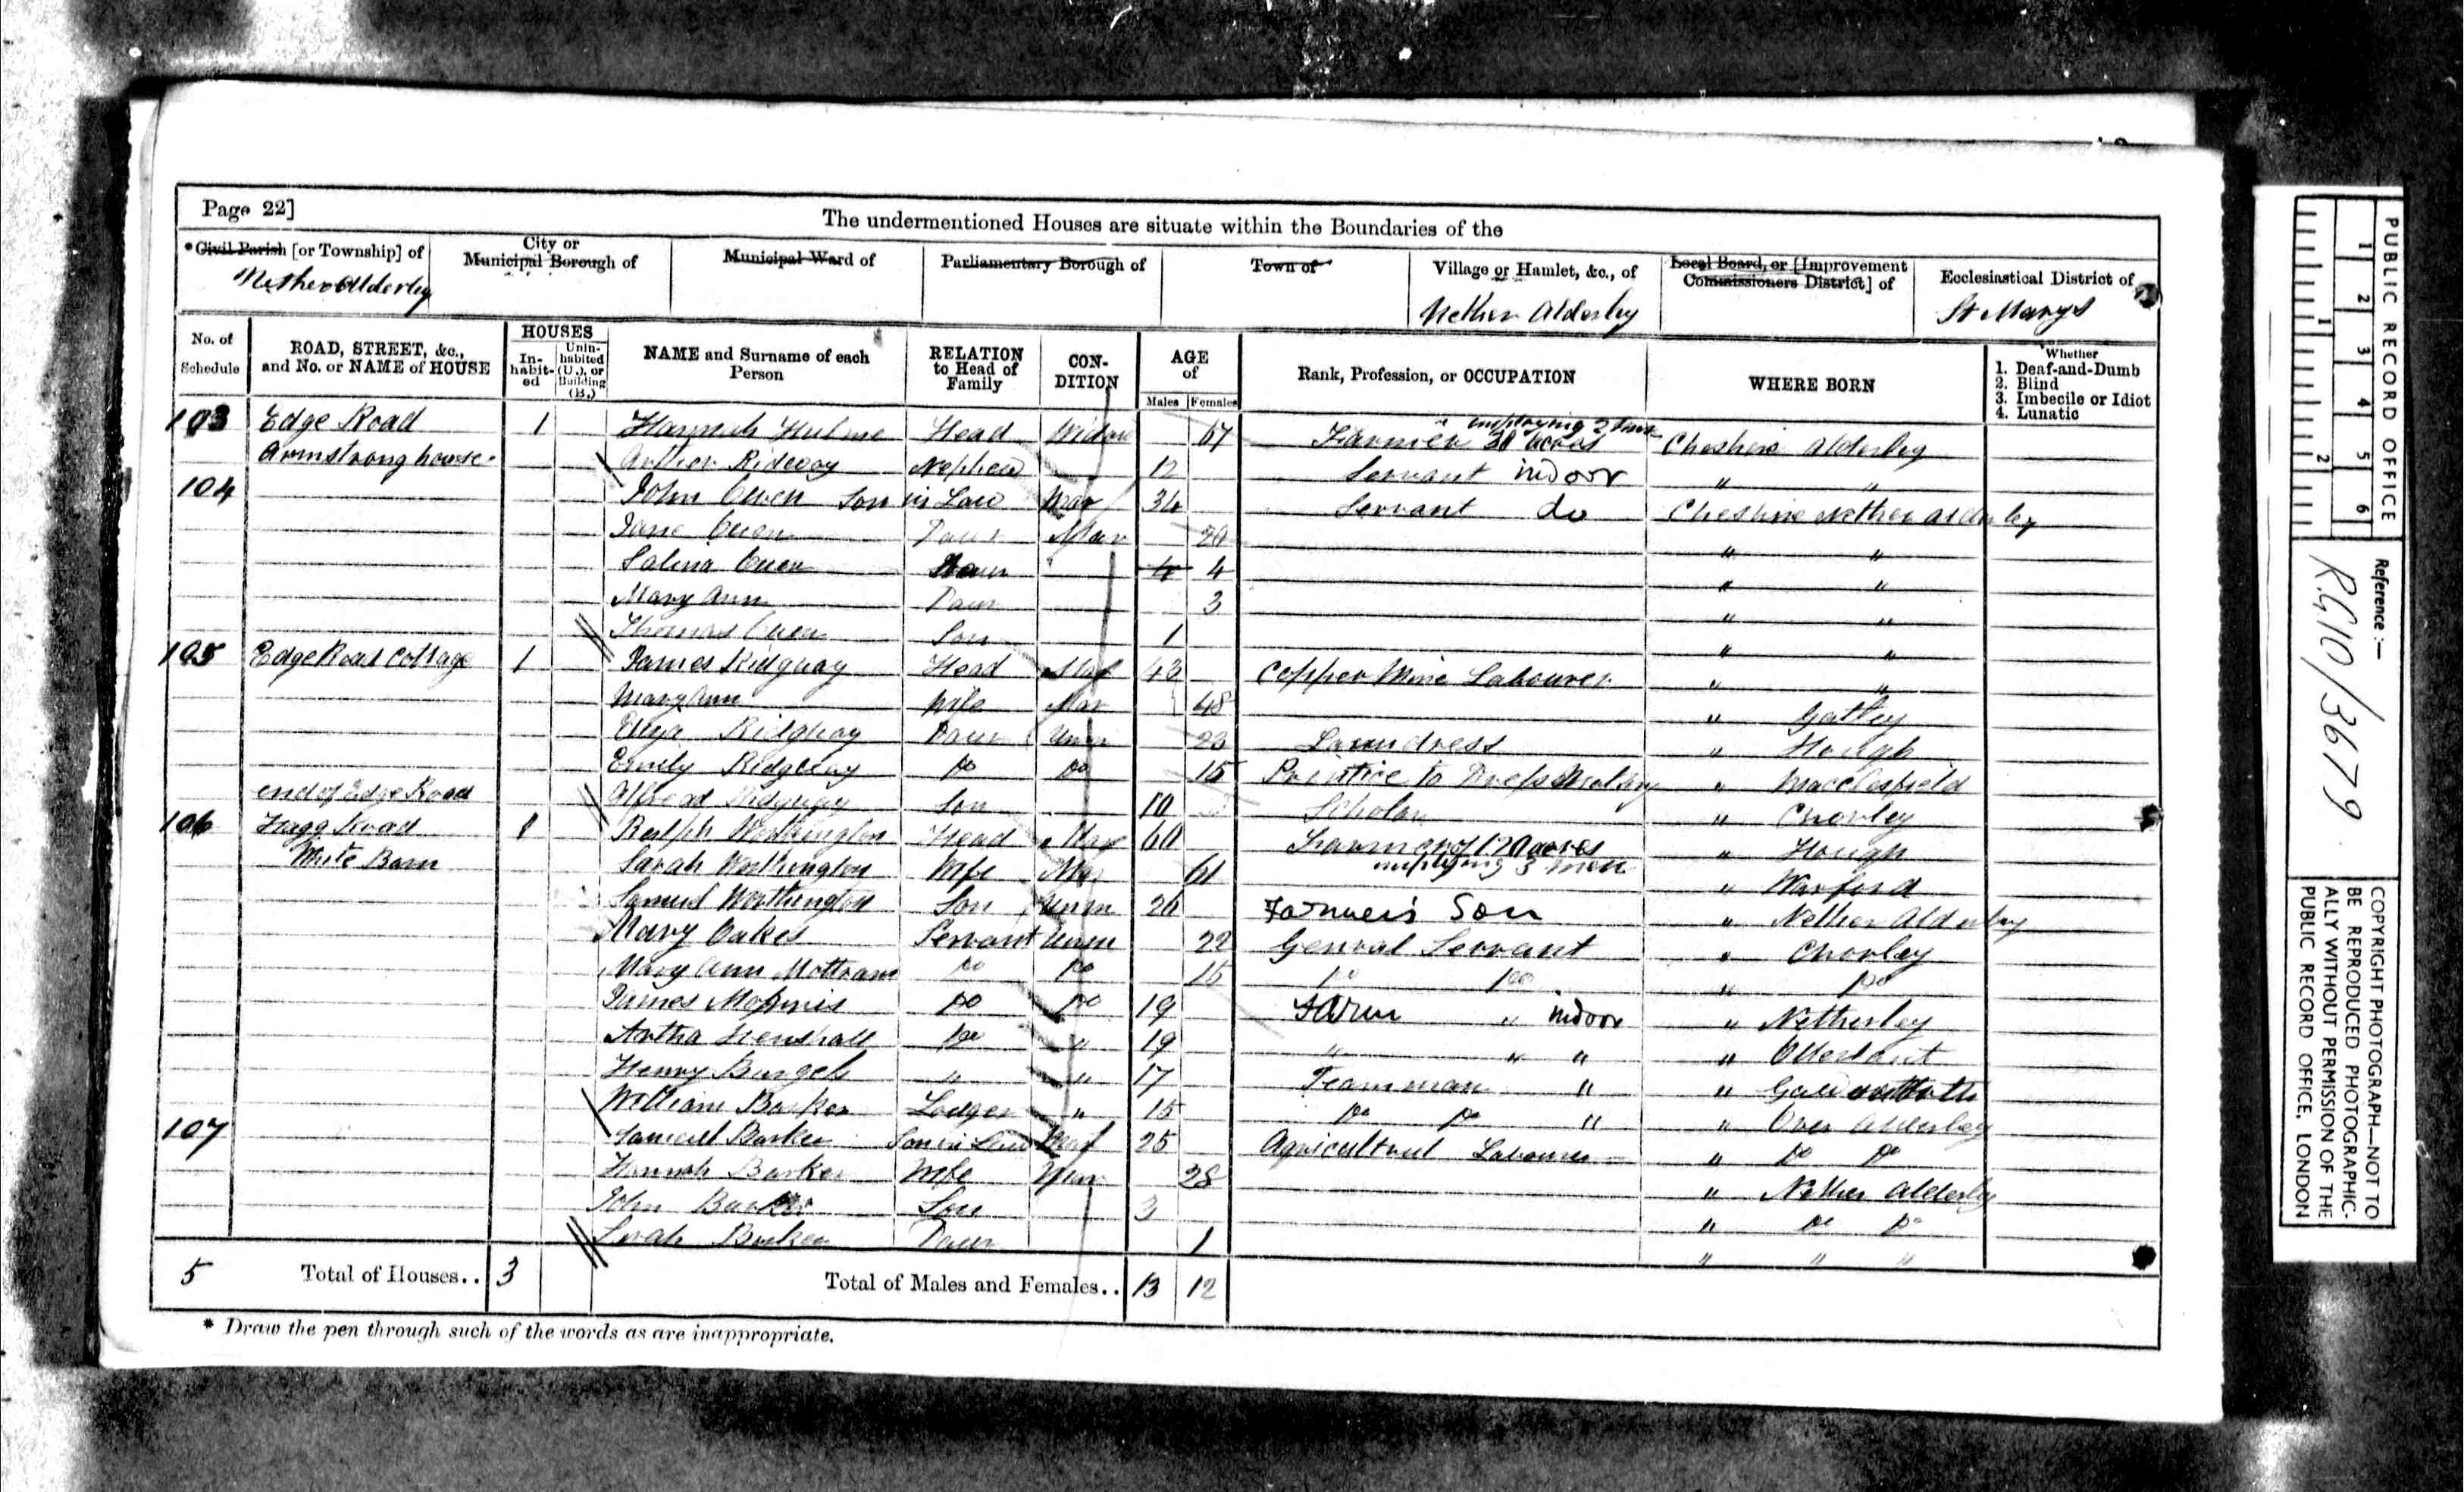 Page 22]
The undermentioned Houses are situate within the Boundaries of the
* Civil Parish [or Township] of
Nether Alderley
City or
Municipal Borough of
Municipal Ward of
Parliamentary Borough of
Town of
Village or Hamlet, &c., of
Nether Alderley
Local Board, or [Improvement
Commissioners District] of
Ecclesiastical District of
St Marys
No. of
Schedule
ROAD, STREET, &c.,
and No. or NAME of HOUSE
HOUSES
In-
habit-
ed
Unin-
habited
(U.), or
Building
(B.)
NAME and Surname of each
Person
RELATION
to Head of
Family
CON-
DITION
AGE
of
Males Females
Rank, Profession, or OCCUPATION
WHERE BORN
Whether
1. Deaf-and-Dumb
2. Blind
3. Imbecile or Idiot
4. Lunatic
103 Edge Road 1 Hannah Hulme Head Widow 67 Farmer 30 acres employing 2 Cheshire Alderley
Armstrong house Arther Ridgway Nephew 12 Servant indoor " "
104 John Owen Son in Law Mar 34 Servant do Cheshire Nether Alderley
Jane Owen Daur Mar 29 " "
Salina Owen Daur 4 4 " "
Mary Ann Daur 3 " "
Thomas Owen Son 1 " "
105 Edge Road Cottage 1 James Ridgway Head Mar 43 Copper Mine Labourer " "
Mary Ann Wife Mar 48 " Gatley
Ridgway Daur Unm 23 Laundress " Hough
Emily Ridgway Do Do 15 Printice to Dress Making " Macclesfield
end of Edge Road Alfread Ridgway Son 10 Scholar " Chorley
106 Hagg Road 1 Ralph Worthington Head Mar 60 Farmer of 120 acres " Hough
White Barn Sarah Worthington Wife Mar 61 employing 3 men " Warford
Samuel Worthington Son Unm 20 Farmer's Son " Nether Alderley
Mary Oakes Servant Unm 22 General Servant " Chorley
Mary Ann Mottram Do Do 15 Do Do " Do
James Do Do 19 Farm " indoor " Netherley
Artha Henshall Do " 19 " " " "
Henry Burgess " " 17 Teamman " "
William Barker Lodger " 15 Do Do " " Over Alderley
107 Samuel Barker Son in Law Mar 25 Agricultural Labourer " Do Do
Hannah Barker Wife Mar 28 " Nether Alderley
John Barker Son 3 " Do Do
Sarah Barker Daur 1 " " "
5 Total of Houses.. 3 Total of Males and Females.. 13 12
* Draw the pen through such of the words as are inappropriate.
PUBLIC RECORD OFFICE
1 2 3 4 5 6
1 2
Reference :—
RG10/3679
COPYRIGHT PHOTOGRAPH—NOT TO
BE REPRODUCED PHOTOGRAPHIC-
ALLY WITHOUT PERMISSION OF THE
PUBLIC RECORD OFFICE, LONDON